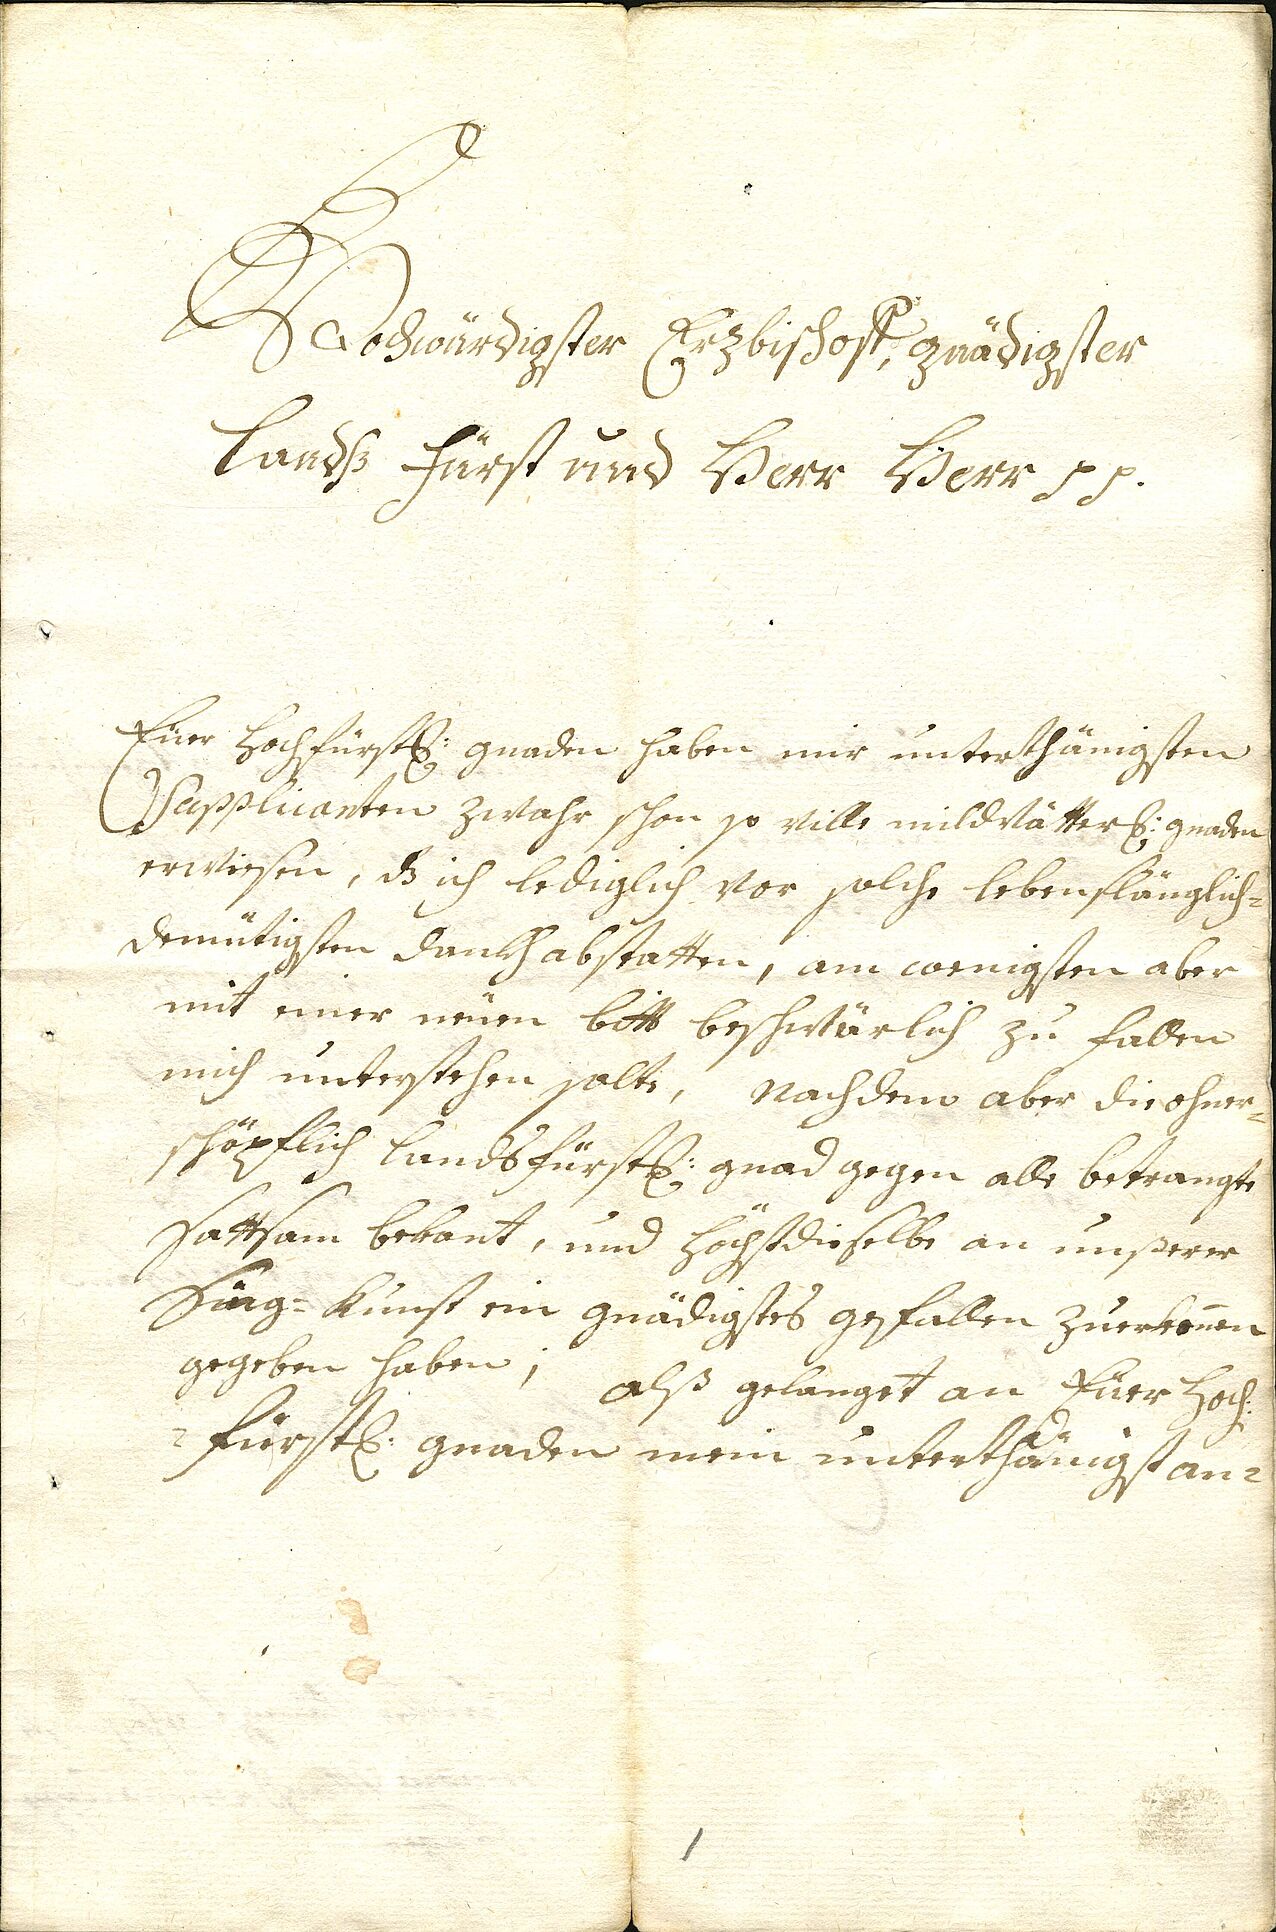 Hochwürdigster Erzbischoff, gnädigster
Landß Fürst und Herr Herr pp.
Euer Hochfürstl: gnaden haben mir unterthänigsten
Supplicanten zwahr schon so ville mildvätterl: gnaden
erwiesen, dz ich lediglich vor solche lebenslänglich=
demütigsten danckh abstatten, am wenigsten aber
mit einer neüen bitt beschwärlich zu fallen
mich unterstehen solte, Nachdem aber die ohner=
schöpflich Landsfürstl: gnad gegen alle betrangte
sattsam bekant, und höchstdieselbe an unßerer
Sing= Kunst ein gnädigstes gefallen zuerkennen
gegeben haben; alß gelanget an Euer Hoch:
=Fürstl: gnaden mein unterthänigst an=
1